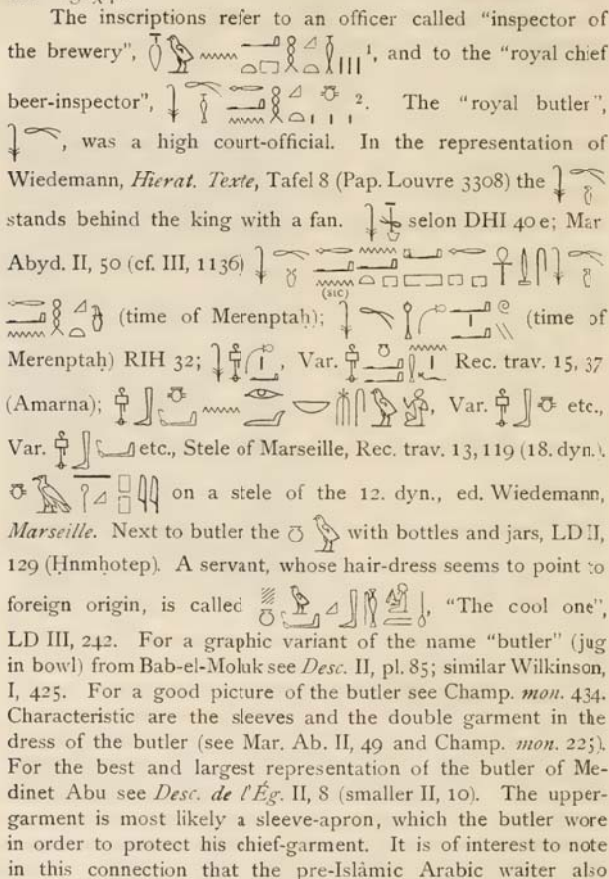 The inscriptions refer to an officer called “inspector of
the brewery”, ¹, and to the “royal chief
beer-inspector”, ². The “royal butler”,
, was a high court-official. In the representation of
Wiedemann, Hierat. Texte, Tafel 8 (Pap. Louvre 3308) the
stands behind the king with a fan. selon DHI 40 e; Mar
Abyd. II, 50 (cf. III, 1136)
(SIC)
(time of Merenptaḥ); (time of
Merenptaḥ) RIH 32; , Var. Rec. trav. 15, 37
(Amarna); , Var. etc.,
Var. etc., Stele of Marseille, Rec. trav. 13, 119 (18. dyn.).
on a stele of the 12. dyn., ed. Wiedemann,
Marseille. Next to butler the with bottles and jars, LD II,
129 (Ḥnmḥotep). A servant, whose hair-dress seems to point to
foreign origin, is called , “The cool one”,
LD III, 242. For a graphic variant of the name “butler” (jug
in bowl) from Bab-el-Moluk see Desc. II, pl. 85; similar Wilkinson,
I, 425. For a good picture of the butler see Champ. mon. 434.
Characteristic are the sleeves and the double garment in the
dress of the butler (see Mar. Ab. II, 49 and Champ. mon. 225).
For the best and largest representation of the butler of Me-
dinet Abu see Desc. de l’Ég. II, 8 (smaller II, 10). The upper-
garment is most likely a sleeve-apron, which the butler wore
in order to protect his chief-garment. It is of interest to note
in this connection that the pre-Islâmic Arabic waiter also